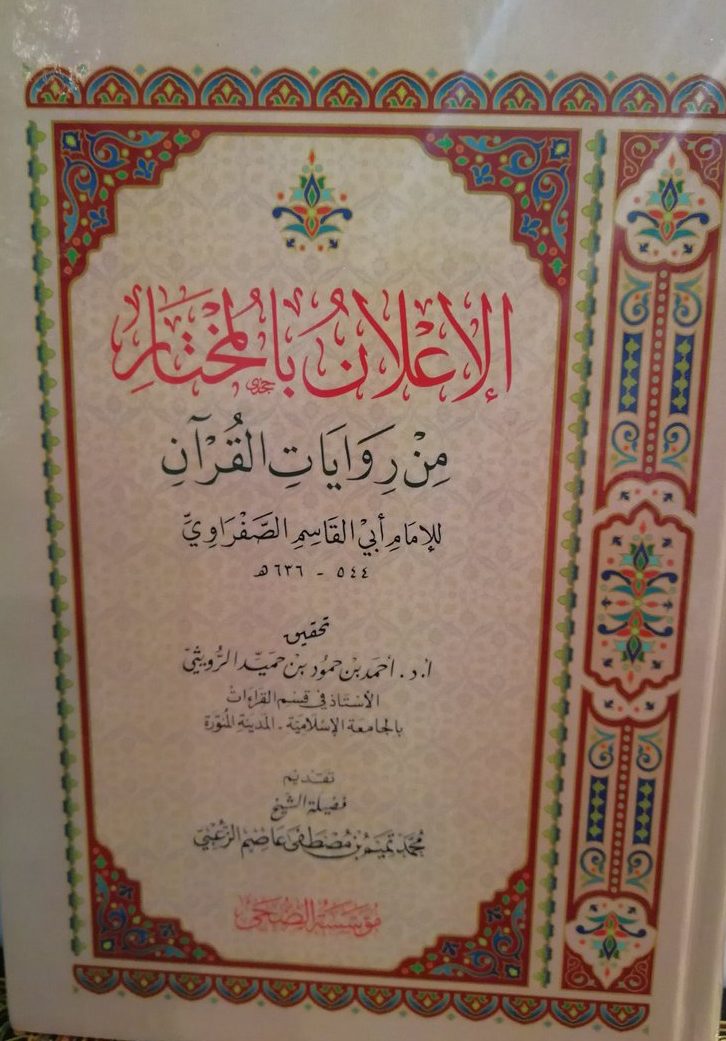 الإِعْلَانُ بِالمُخْتَارِ
مِنْ رِوَايَاتِ القُرْآنِ
للإمَامِ أَبِيْ القَاسِمِ الصَّفْرَاوِيِّ
٥٤٤ - ٦٣٦هـ
تحقيق
أ. د. أحمد بن حمود بن حميّد الرُّويثيّ
الأستاذ في قسم القراءات
بالجامعة الإسلاميّة - المدينة المنوّرة
تقديم
فضيلة الشيخ
محمّد تميم بن مصطفى عاصم الزّعبيّ
مؤسسة الضحى